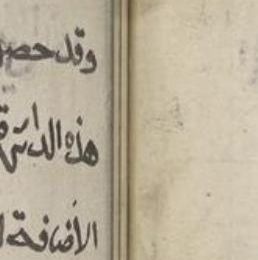 وقد حصر
هذه الدائرة
الأضافة